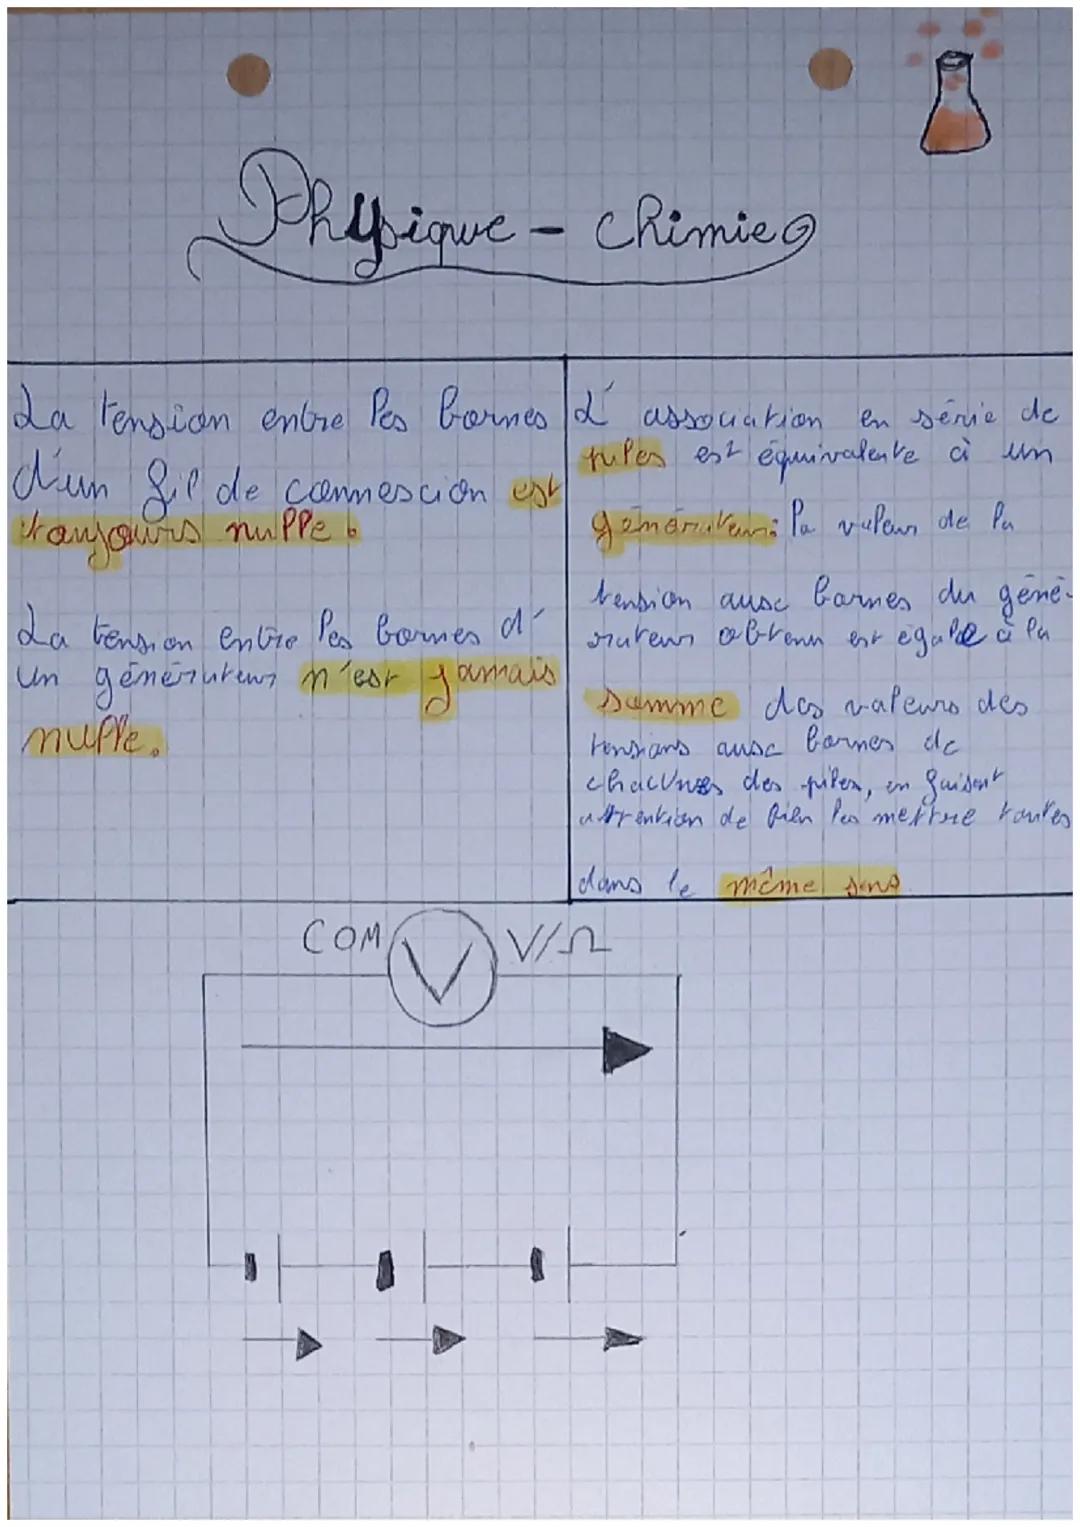 Physique - chimie
La tension entre les bornes
d'un fil de connescion est
toujours nulle.
La tension entre les bornes d'
un générateur n'est jamais
nulle.
L'association en série de
piles est équivalente à un
générateur: la valeur de la
tension aux bornes du géné-
rateur obtenu est égale à la
somme des valeurs des
tensions aux bornes de
chacunes des piles, en faisant
attention de bien les mettre toutes
dans le même sens
COM V V/Ω